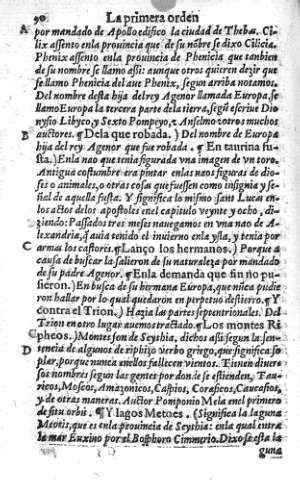 90 La primera orden
A por mandado de Apollo edifico la ciudad de Thebas. Ci-
lix assento enla prouincia que de su nõbre se dixo Cilicia.
Phenix assento enla prouincia de Phenicia que tanbien
de su nombre se llamo assi: aunque otros quieren dezir que
se llamo Phenicia del aue Phenix, segun arriba notamos.
Del nombre desta hija del rey Agenor llamada Europa, se
llamo Europa la tercera parte dela tierra, segũ escriue Dio
nysio Libyco, y Sexto Pompeyo, z Anselmo z otros muchos
B auctores. ¶ Dela que robada. } Del nombre de Europa
hija del rey Agenor que fue robada. ¶ En taurina fu-
sta. } Enla nao que tenia figurada vna imagen de vn toro.
Antigua costumbre era pintar enlas naos figuras de dio-
ses o animales, o otras cosas que fuessen como insignia y se-
ñal de aquella fusta. Y significa lo mismo sant Lucas en
los actos delos apostoles enel capitulo veynte y ocho, di-
ziendo: Passados tres meses nauegamos en vna nao de A-
lexandria, q̃ auia tenido el inuierno enla ysla, y tenia por
C armas los castores. ¶ Lanço los hermanos. } Porque a
causa de buscar la salieron de su naturaleza por mandado
de su padre Agenor. ¶ Enla demanda que fin no pu-
sieron. } En busca de su hermana Europa, que nũca pudie
ron hallar por lo qual quedaron en perpetuo destierro. ¶ Y
contra el Trion. } Hazia las partes septentrionales. Del
Trion en otro lugar auemos tractado. ¶ Los montes Ri
pheos. } Montes son de Scythia, dichos assi segun la sen-
D tencia de algunos de riphizo verbo griego, que significa so
plar, porque nunca enellos fallecen vientos. Tienen diuer
sos nombres segun las gentes por donde se estienden, Tau-
ricos, Moscos, Amazonicos, Caspios, Coraficos, Caucasios,
y de otras maneras. Auctor Pomponio Mela enel primero
de situ orbis. ¶ Y lagos Metoes. { Significa la laguna
Meotis, que es enla prouincia de Scythia: enla qual entra
la mar Euxino por el Bosphoro Cimmerio. Dixo se esta la
guna